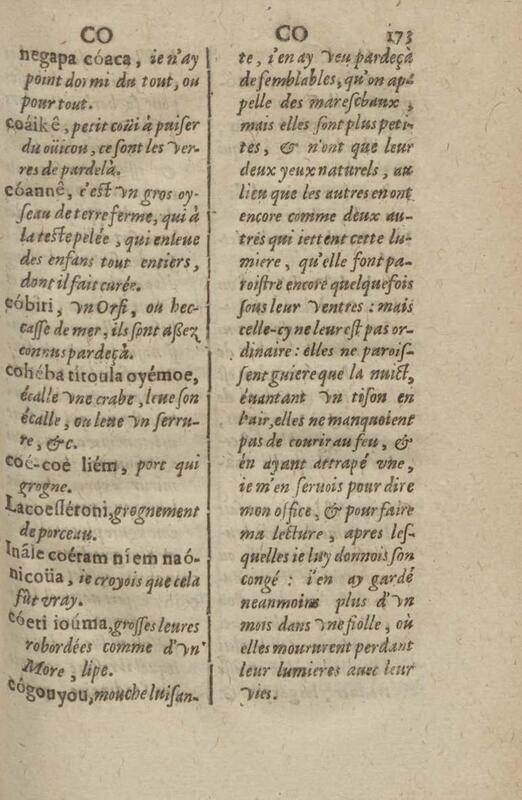 CO
negapa cóaca, ie n'ay
point dormi du tout, ou
pour tout.
coáikê, petit coüi à puiser
du oüicou, ce sont les ver-
res de pardelà.
cóannê, c'est vn gros oy-
seau de terre ferme, qui à
la teste pelée, qui enleue
des enfans tout entiers,
dont il fait curée.
cóbiri, vn Orfi, ou bec-
casse de mer, ils sont aßez
connus pardeçà.
cohéba titoula oyémoe,
écalle vne crabe, leue son
écalle, ou leue vn serru-
re, &c.
coé-coè liém, porc qui
grogne.
Lacoessétoni, grognement
de porceau.
Inâle coéram ni em naó-
nicoüa, ie croyois que cela
fût vray.
cóeti ioúma, grosses leures
robordées comme d'vn
More, lipe.
cógouyou, mouche luisan-
CO 173
te, i'en ay veu pardeçà
de semblables, qu'on ap-
pelle des mareschaux,
mais elles sont plus peti-
tes, & n'ont que leur
deux yeux naturels, au
lieu que les autres en ont
encore comme deux au-
tres qui iettent cette lu-
miere, qu'elle font pa-
roistre encore quelquefois
sous leur ventres : mais
celle-cy ne leur est pas or-
dinaire : elles ne parois-
sent guiere que la nuict,
éuantant vn tison en
l'air, elles ne manquoient
pas de courir au feu, &
én ayant attrapé vne,
ie m'en seruois pour dire
mon office, & pour faire
ma lecture, apres les-
quelles ie luy donnois son
congé : i'en ay gardé
neanmoins plus d'vn
mois dans vne fiolle, où
elles moururent perdant
leur lumieres auec leur
vies.